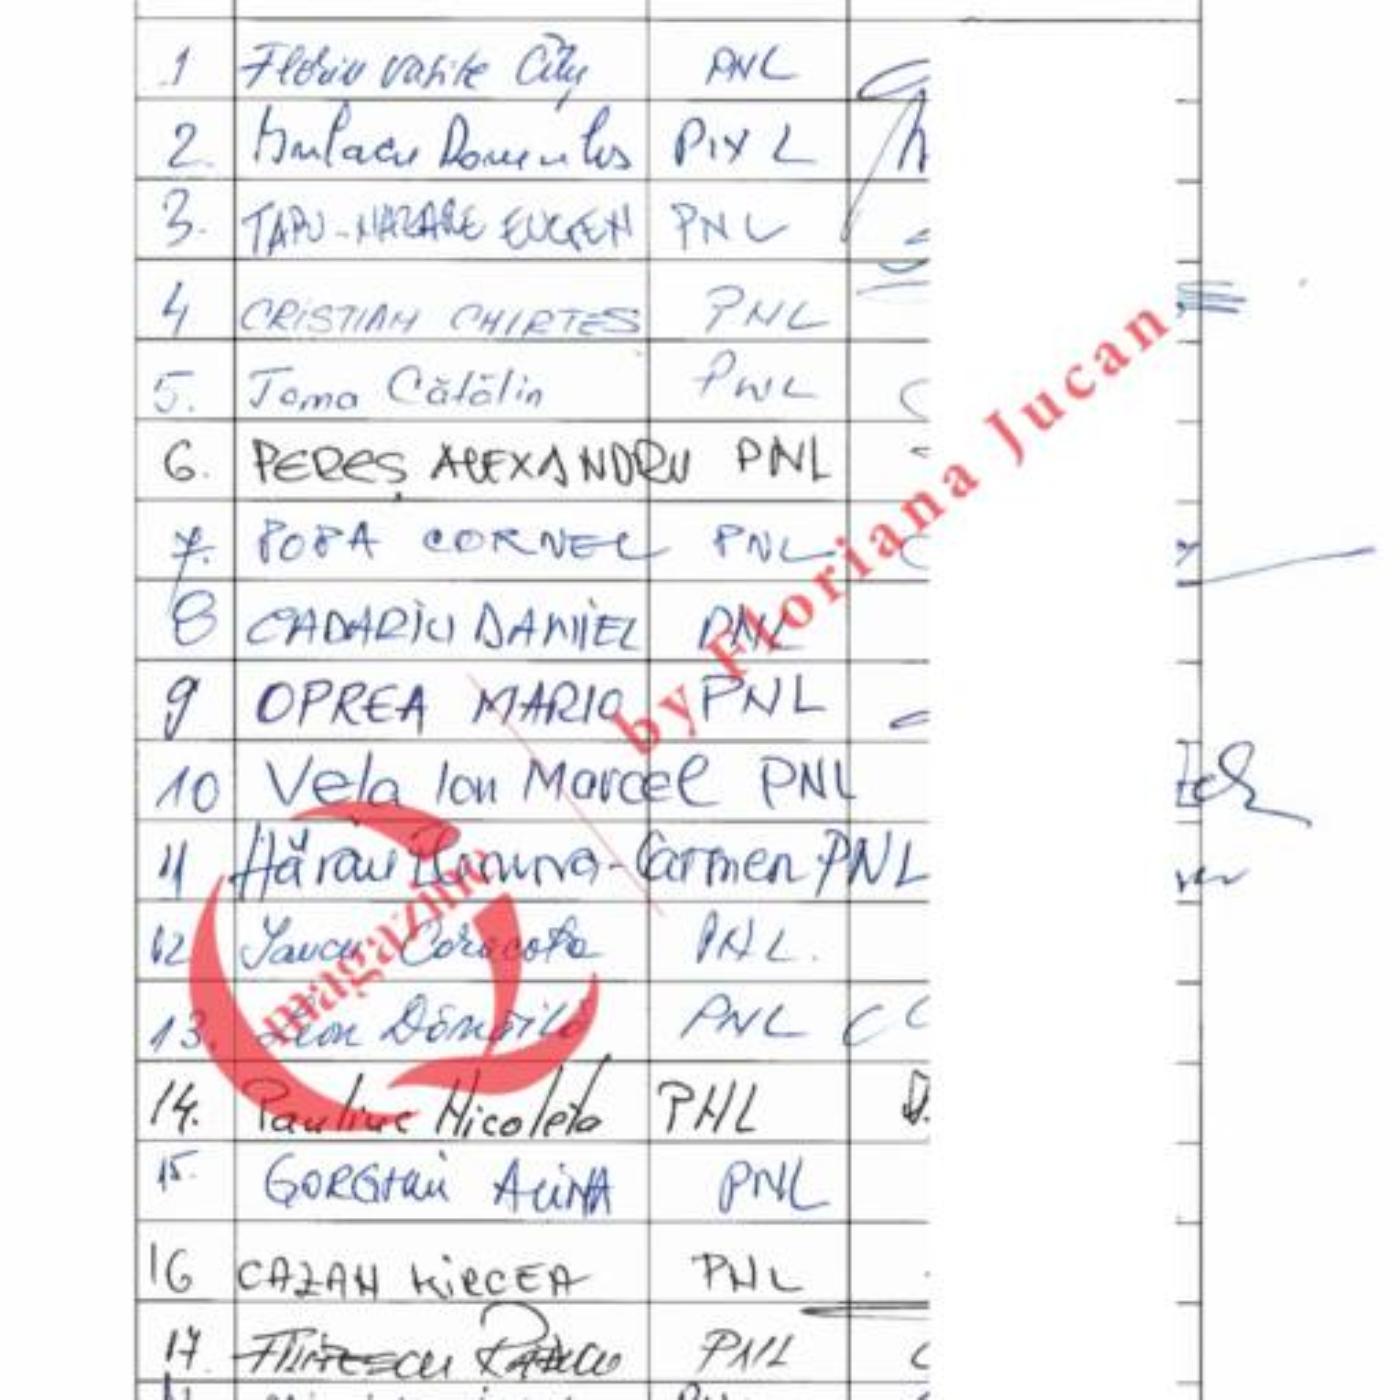 1 Florin Vasile Cîțu PNL
2. Romulus PNL
3. TAPU-NAZARE EUGEN PNL
4 CRISTIAN CHIRTES PNL
5. Toma Cătălin PNL
6. PEREȘ ALEXANDRU PNL
7. POPA CORNEL PNL
8 CADARIU DANIEL PNL
9 OPREA MARIO PNL
10 Vela Ion Marcel PNL
11 Hărău -Carmen PNL
12 PNL.
13. Dănăilă PNL
14. Pauliuc Nicoleta PNL
15. GORGHIU ALINA PNL
16 CAZAN MIRCEA PNL
17. PNL
by Floriana Jucan
Q magazine